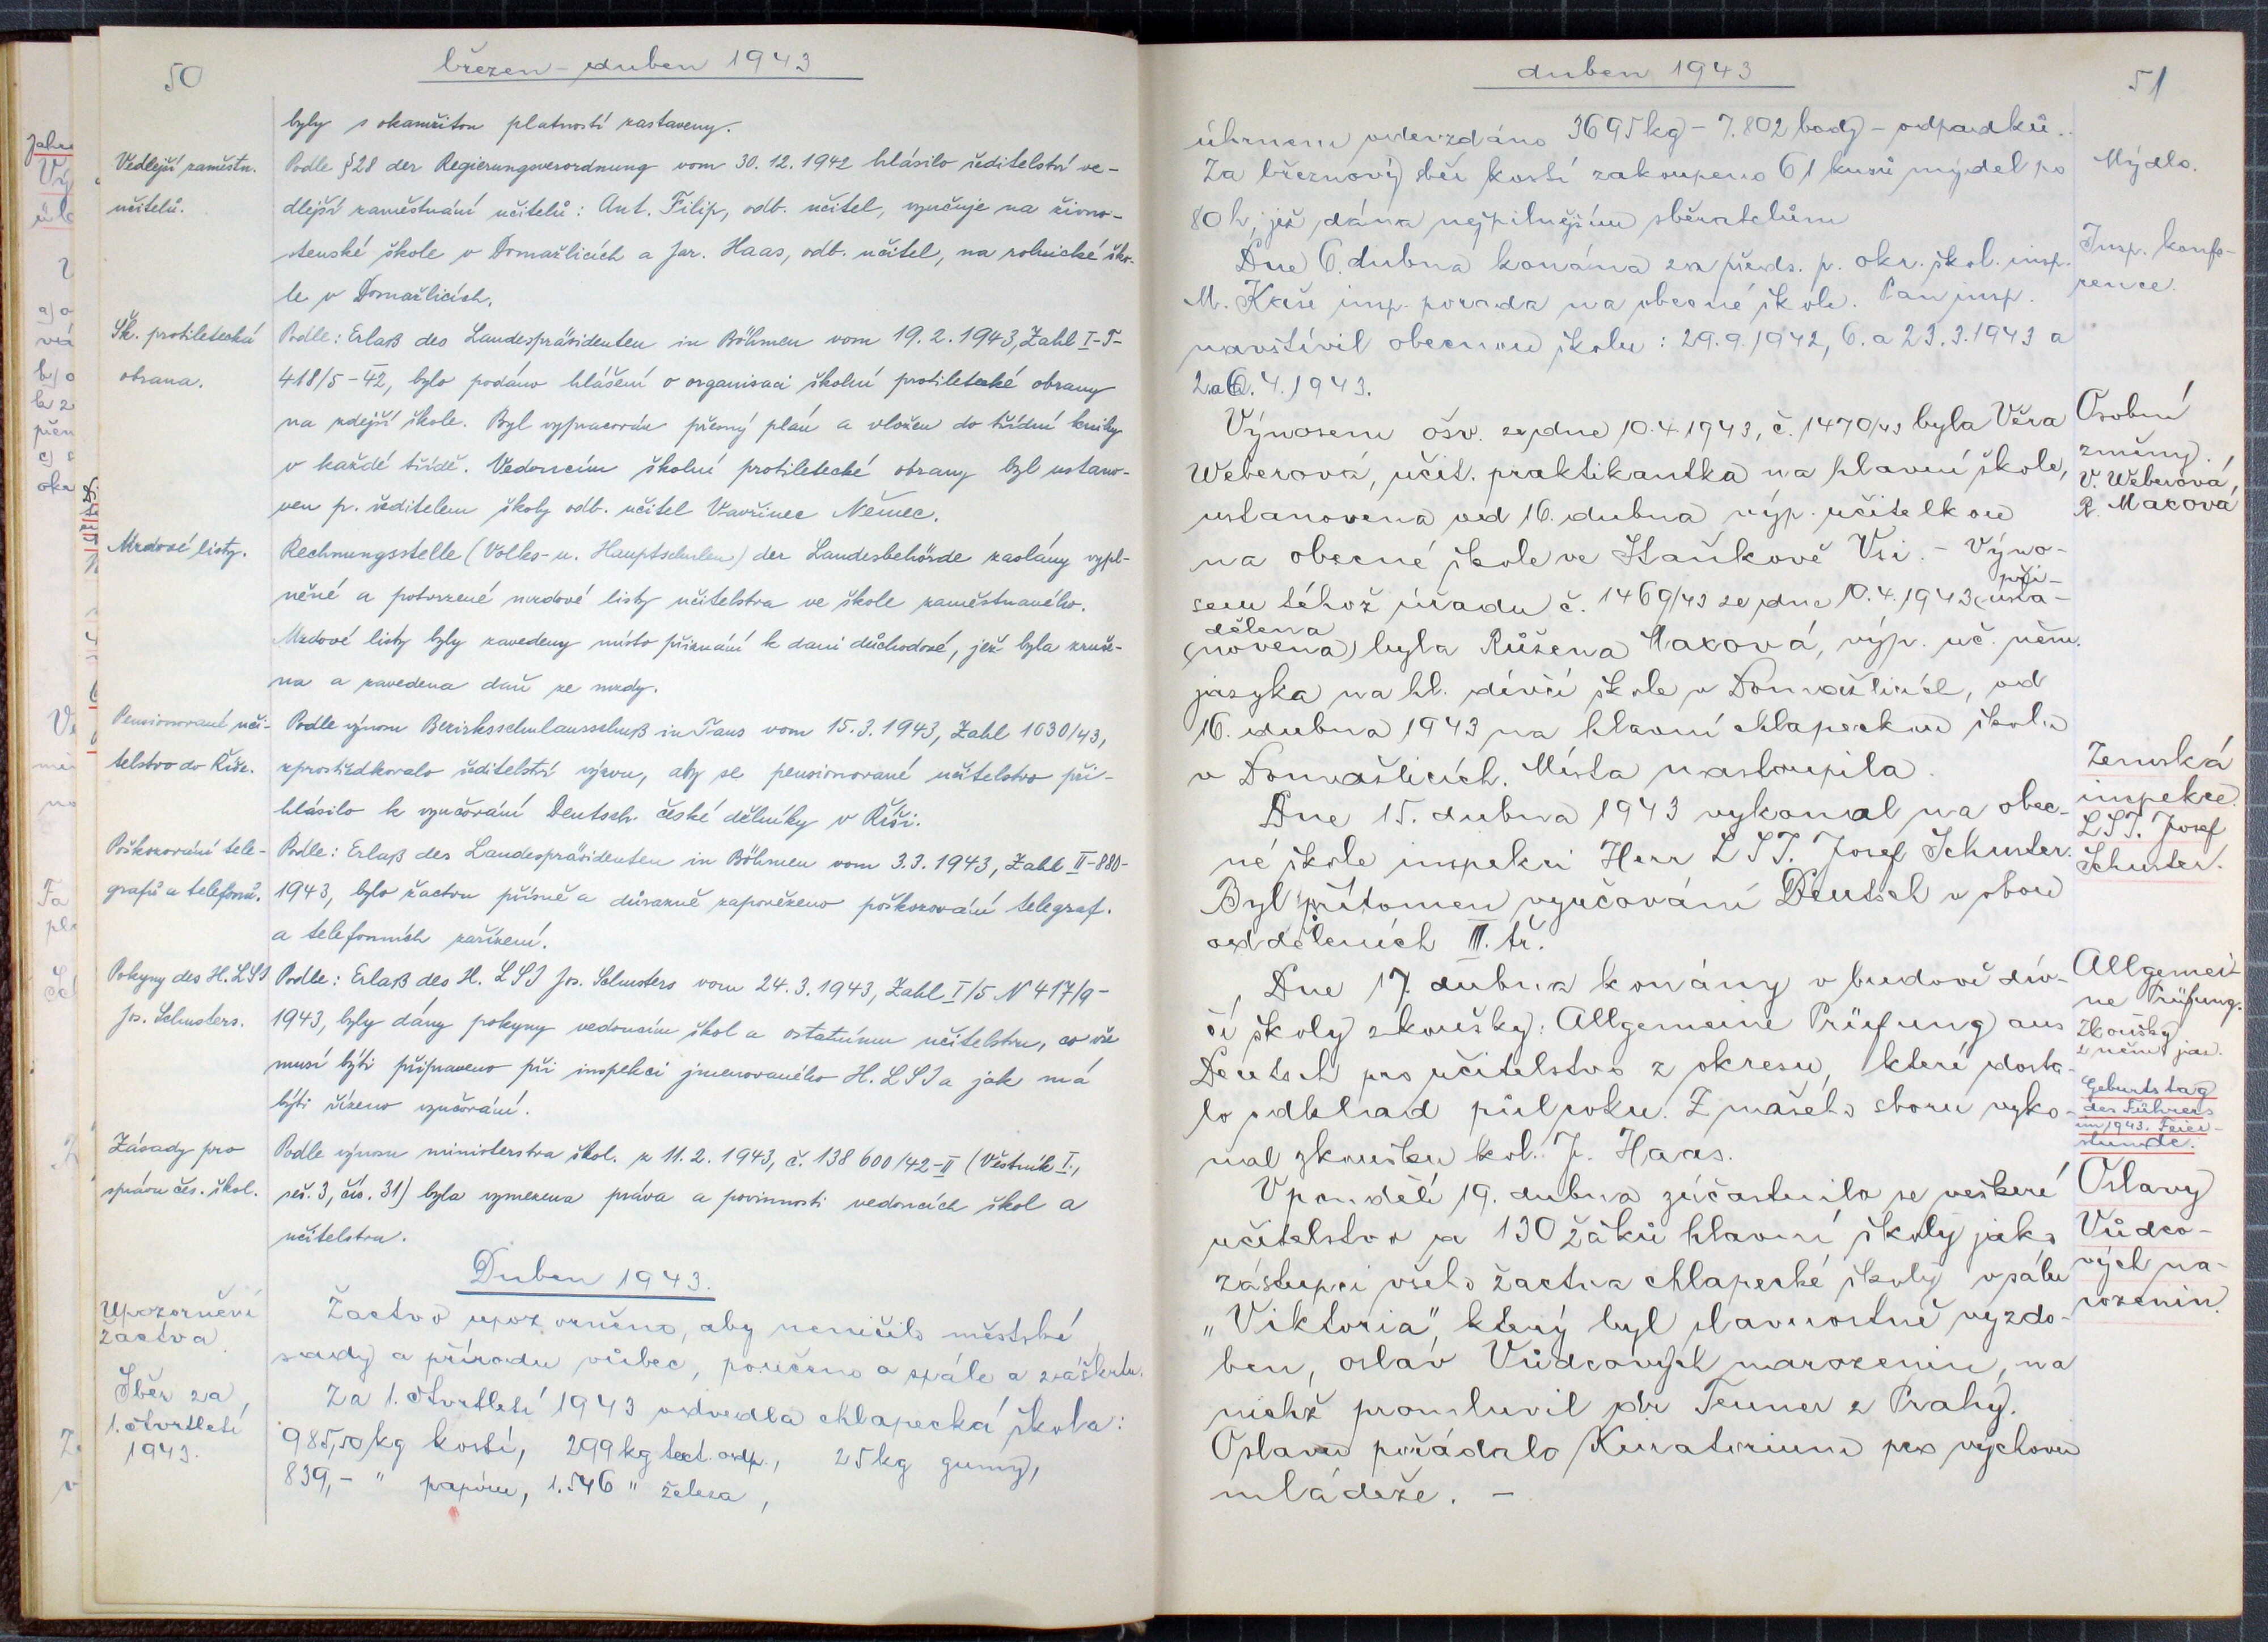 50
březen-duben 1943
byly s okamžitou platností zastaveny.
Vedlejší zaměstn.
učitelů.
Podle §28 der Regierungsverordnung vom 30.12.1942 hlásilo ředitelství ve-
dlejší zaměstnání učitelů: Ant. Filip, odb. učitel, vyučuje na živno-
stenské škole v Domažlicích a Jar. Haas, odb. učitel, na rolnické ško-
le v Domažlicích.
Šk. protiletecká
obrana.
Podle: Erlaß des Landespräsidenten in Böhmen vom 19.2.1943, Zahl I-T-
418/5-42, bylo podáno hlášení o organisaci školní protiletecké obrany
na zdejší škole. Byl vypracován přesný plán a vložen do třídní knihy
v každé třídě. Vedoucím školní protiletecké obrany byl ustano-
ven p. ředitelem školy odb. učitel Vavřinec Němec.
Mzdové listy.
Rechnungsstelle (Volks- u. Hauptschulen) der Landesbehörde zaslány vypl-
něné a potvrzené mzdové listy učitelstva ve škole zaměstnaného.
Mzdové listy byly zavedeny místo přiznání k dani důchodové, jež byla zruše-
na a zavedena daň ze mzdy.
Pensionované uči-
telstvo do Říše.
Podle výnosu Bezirksschulausschuß in Taus vom 15.3.1943, Zahl 1030/43,
zprostředkovalo ředitelství výzvu, aby se pensionované učitelstvo při-
hlásilo k vyučování Deutsch české dělníky v Říši.
Poškozování tele-
grafů a telefonů.
Podle: Erlaß des Landespräsidenten in Böhmen vom 3.3.1943, Zahl II-880-
1943, bylo žactvu přísně a důrazně zapovězeno poškozování telegraf.
a telefonních zařízení.
Pokyny des H. LSI
Jos. Schusters.
Podle: Erlaß des H. LSI Jos. Schusters vom 24.3.1943, Zahl I/5 N 417/9-
1943, byly dány pokyny vedoucím škol a ostatnímu učitelstvu, co vše
musí býti připraveno při inspekci jmenovaného H. LSI a jak má
býti řízeno vyučování.
Zásady pro
správu čes. škol.
Podle výnosu ministerstva škol. z 11.2.1943, č. 138 600/42-II (Věstník I.,
seš. 3, čís. 31) byla vymezena práva a povinnosti vedoucích škol a
učitelstva.
Duben 1943.
Upozornění
žactva.
Žactvo upozorněno, aby neničilo městské
sady a přírodu vůbec, poučeno o spále a záškrtu.
Sběr za
1. čtvrtletí
1943.
Za 1. čtvrtletí 1943 odvedla chlapecká škola:
985,50 kg kostí, 299 kg text. odp., 25 kg gumy,
839,- " papíru, 1.546 " železa,
duben 1943
51
úhrnem odevzdáno 3695 kg - 7.802 body - odpadků.
Za březnový sběr kostí zakoupeno 61 kusů mýdel po
80 h, jež dána nejpilnějším sběratelům
Mýdlo.
Dne 6. dubna konána za předs. p. okr. škol. insp.
M. Kaše insp. porada na obecné škole. Pan insp.
navštívil obecnou školu: 29.9.1942, 6. a 23.3.1943 a
2. a 6. 4. 1943.
Insp. konfe-
rence.
Výnosem ošv. ze dne 10.4.1943, č. 1470/43 byla Věra
Weberová, učit. praktikantka na hlavní škole,
ustanovena od 16. dubna výp. učitelkou
na obecné škole ve Staňkově Vsi. - Výno-
při-
sem téhož úřadu č. 1469/43 ze dne 10.4.1943 (usta-
dělena
novena) byla Růžena Maxová, výp. uč. něm.
jazyka na hl. dívčí škole v Domažlicích, od
16. dubna 1943 na hlavní chlapeckou školu
v Domažlicích. Místa nastoupila.
Osobní
změny.
V. Weberová,
R. Maxová
Dne 15. dubna 1943 vykonal na obec-
né škole inspekci Herr LSI. Josef Schuster.
Byl přítomen vyučování Deutsch v obou
odděleních III. tř.
Zemská
inspekce.
LSI. Josef
Schuster.
Dne 17. dubna konány v budově dív-
čí školy zkoušky: Allgemeine Prüfung aus
Deutsch pro učitelstvo z okresu, které dosta-
lo odklad půl roku. Z našeho sboru vyko-
nal zkoušku kol. J. Haas.
Allgemei-
ne Prüfung.
Zkoušky
z něm. jaz.
Geburtstag
des Führers
im 1943. Feier-
stunde.
V pondělí 19. dubna zúčastnilo se veškeré
učitelstvo a 130 žáků hlavní školy jako
zástupci všeho žactva chlapecké školy v sálu
„Viktoria“, který byl slavnostně vyzdo-
ben, oslav Vůdcových narozenin, na
nichž promluvil dr Teuner z Prahy.
Oslavu pořádalo Kuratorium pro výchovu
mládeže. -
Oslavy
Vůdco-
vých na-
rozenin.